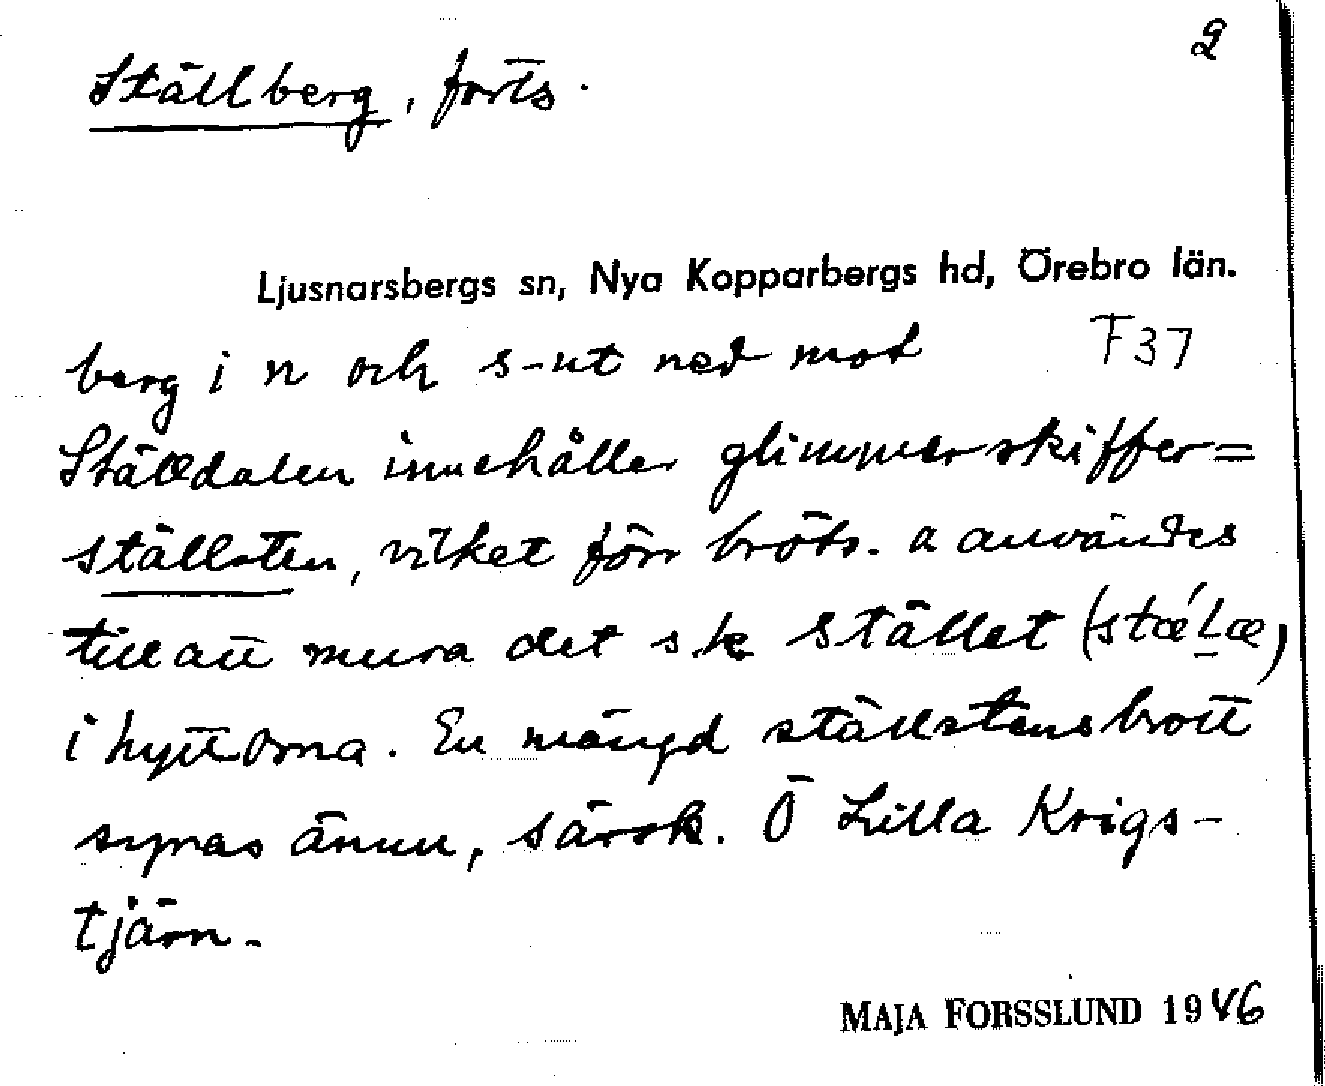 2
Ställberg, forts.
Ljusnarsbergs sn, Nya Kopparbergs hd, Örebro län.
berg i n och s-ut ned mot F37
Ställdalen innehåller glimmerskiffer=
ställsten, vilket förr bröts. a användes
till att mura det s.k Stället (stæ´Læ)
i hyttorna. En mängd ställstensbrott
synas ännu, särsk. Ö Lilla Krigs-
tjärn.
MAJA FORSSLUND 1946